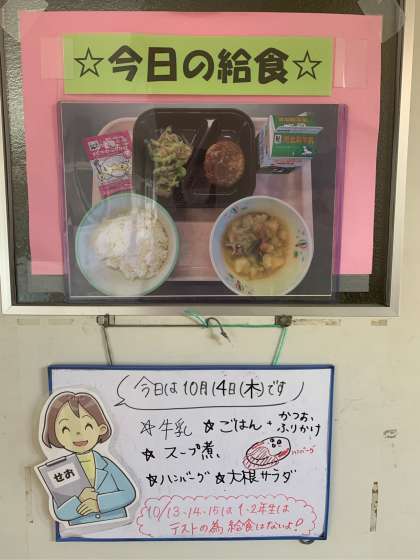 ☆今日の給食☆
今日は10月14日(木)です
☆牛乳 ☆ごはん+かつお、ふりかけ
☆スープ煮、
ハンバーグ
☆ハンバーグ ☆大根サラダ
せお
10/13・14・15は1・2年生は
テストの為給食はないよ!